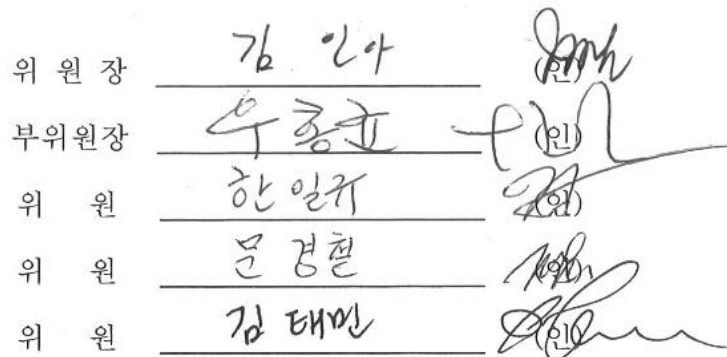 위 원 장 김 인아 (인)
부위원장 우홍균 (인)
위 원 한일규 (인)
위 원 문경철 (인)
위 원 김태민 (인)